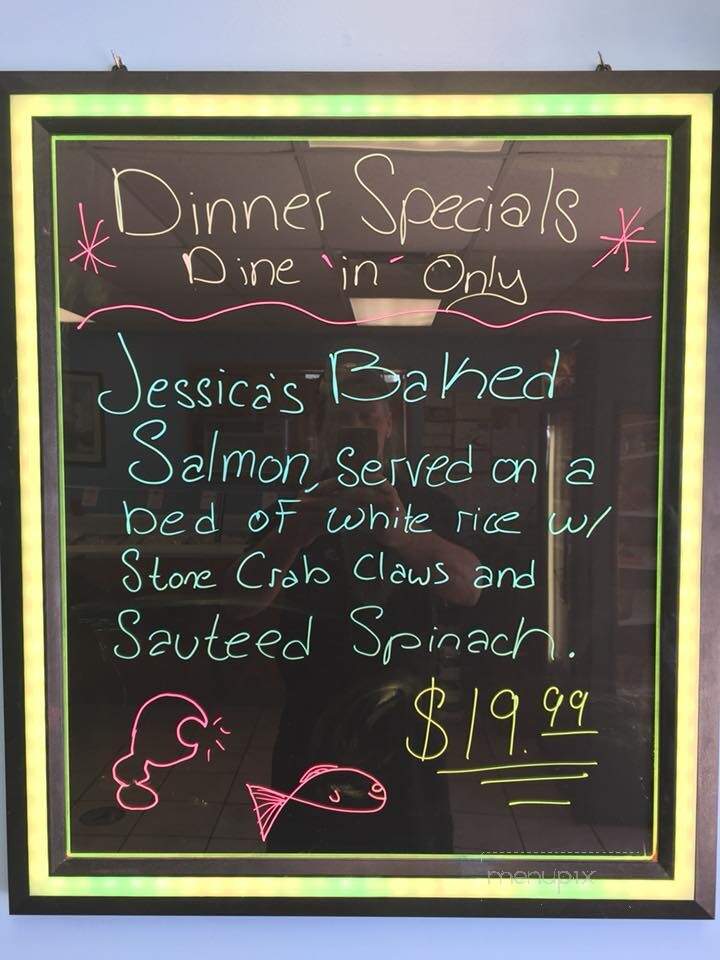 Dinner Specials
Dine "in" Only
Jessica's Baked
Salmon, served on a
bed of white rice w/
Stone Crab Claws and
Sauteed Spinach.
$19.99
menupix